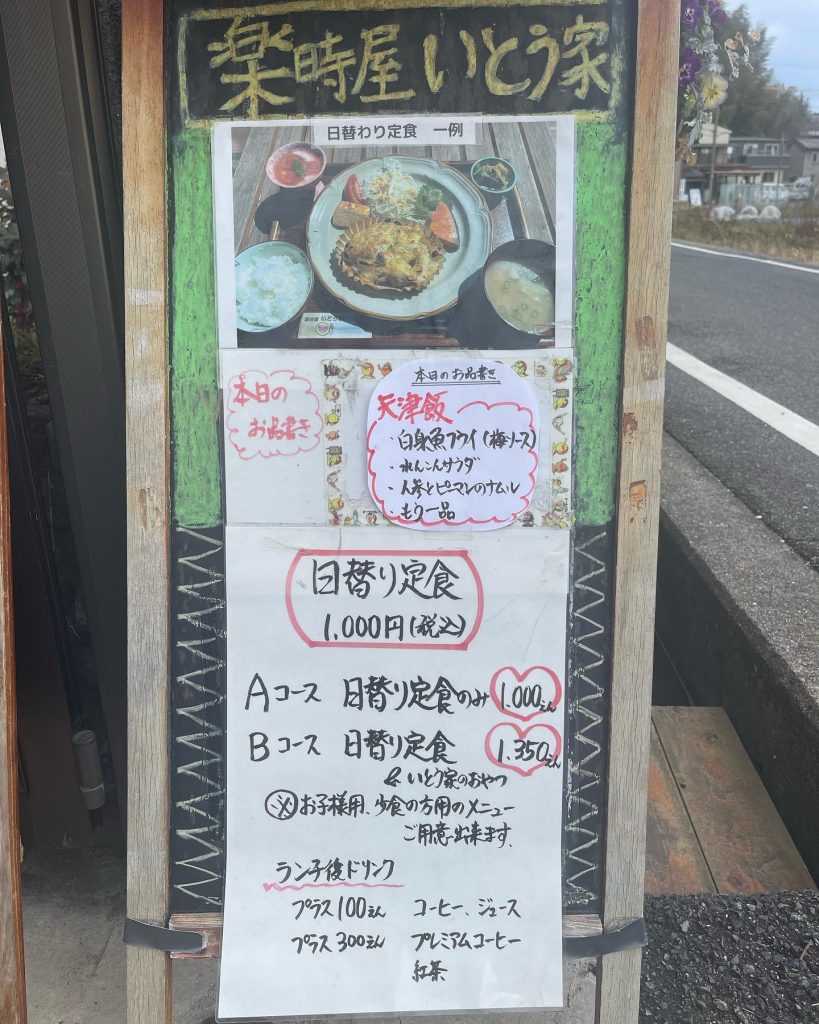 楽時屋 いとう家
日替わり定食 一例
本日の
お品書き
本日のお品書き
天津飯
・白身魚フライ(梅ソース)
・れんこんサラダ
・人参とピーマンのナムル
・もう一品
日替り定食
1.000円(税込)
Aコース 日替り定食のみ 1.000えん
Bコース 日替り定食 1.350えん
& いとう家のおやつ
※お子様用、少食の方用のメニュー
ご用意出来ます。
ランチ後ドリンク
プラス100えん コーヒー、ジュース
プラス300えん プレミアムコーヒー
紅茶